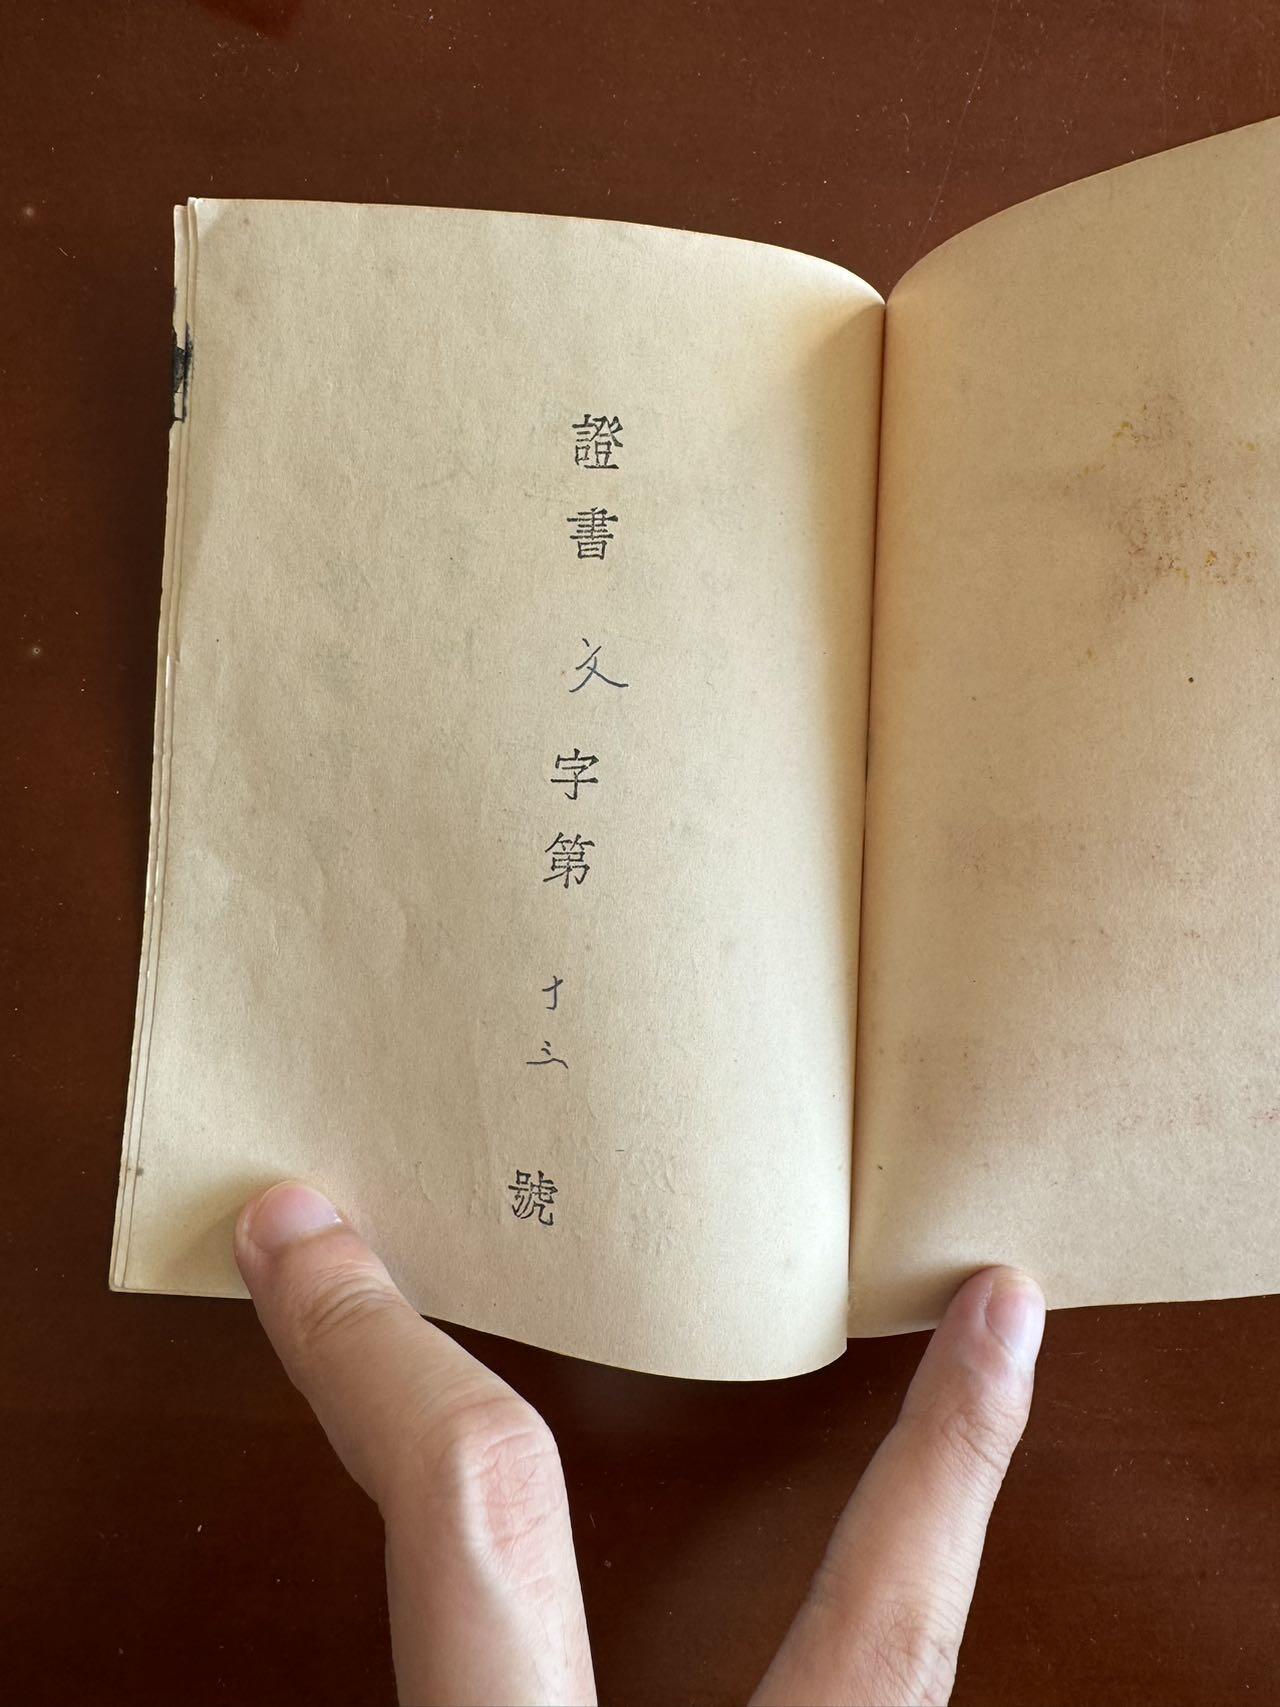 證書文字第十三號